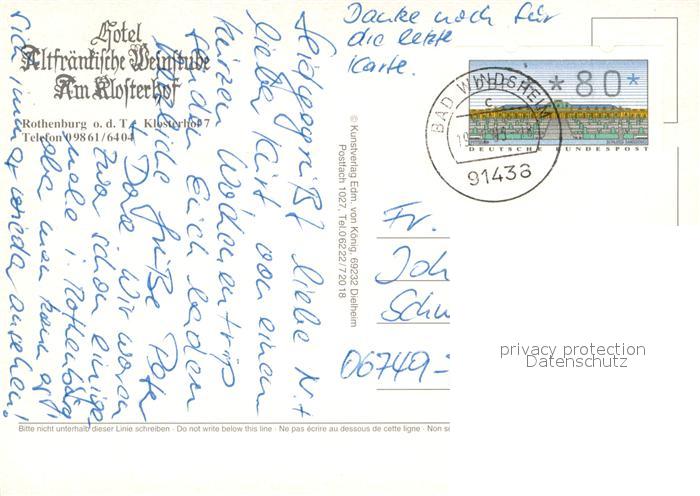 Hotel
Altfränkische Weinstube
Am Klosterhof
Rothenburg o. d. T. · Klosterhof 7
Telefon 0 98 61 / 64 04
Danke noch für
die letzte
Karte.
liebe N. +
lieber Kurt von einem
kurzen Wochenendtrip
senden Euch beiden
liebe Grüße Peter
+ Dora Wir waren
zwar schon einige
male i. Rothenburg
aber man kann es
sich immer wieder ansehen!
© Kunstverlag Edm. von König, 69232 Dielheim
Postfach 1027, Tel. 0 62 22 / 7 20 18
BAD WINDSHEIM
c
91438
*80*
DEUTSCHE BUNDESPOST
Fr.
Joh
Schu
06749-
privacy protection
Datenschutz
Bitte nicht unterhalb dieser Linie schreiben · Do not write below this line · Ne pas écrire au dessous de cette ligne · Non s